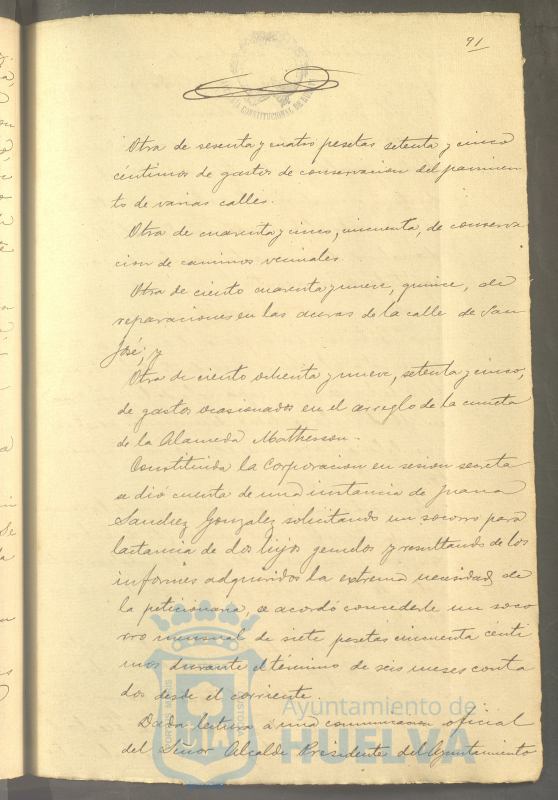 91
Otra de sesenta y cuatro pesetas setenta y cinco
céntimos de gastos de conservacion del pavimen
to de varias calles.
Otra de cuarenta y cinco, cincuenta, de conserva
cion de caminos vecinales.
Otra de ciento cuarenta y nueve, quince, de
reparaciones en las aceras de la calle de San
José; y
Otra de ciento ochenta y nueve, setenta y cinco,
de gastos ocasionados en el arreglo de la cuneta
de la Alameda Matherson.
Constituida la Corporacion en sesion secreta
se dió cuenta de una instancia de Juana
Sanchez Gonzalez solicitando un socorro para
lactancia de dos hijos gemelos y resultando de los
informes adquiridos la extrema necesidad de
la peticionaria, se acordó concederle un soco
rro mensual de siete pesetas cincuenta cénti
mos durante el término de seis meses conta
dos desde el corriente.
Dada lectura á una comunicacion oficial
del Señor Alcalde Presidente del Ayuntamiento
Ayuntamiento de
HUELVA